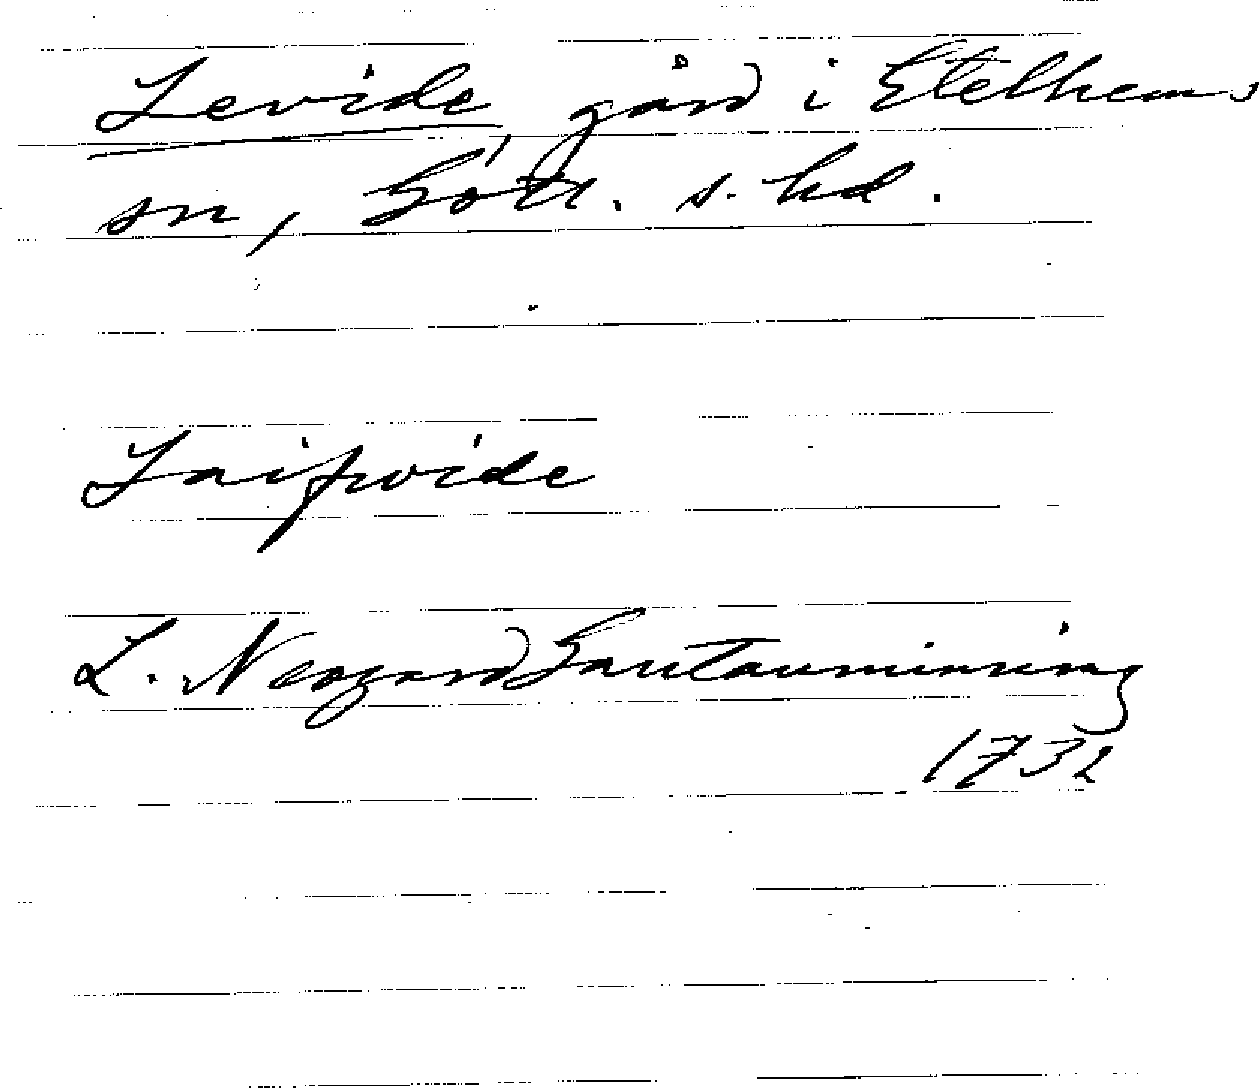 Levide, gård i Etelhems
sn, Gotl. s. hd.
Laifwide
L. Neogard Gautauminning
1732